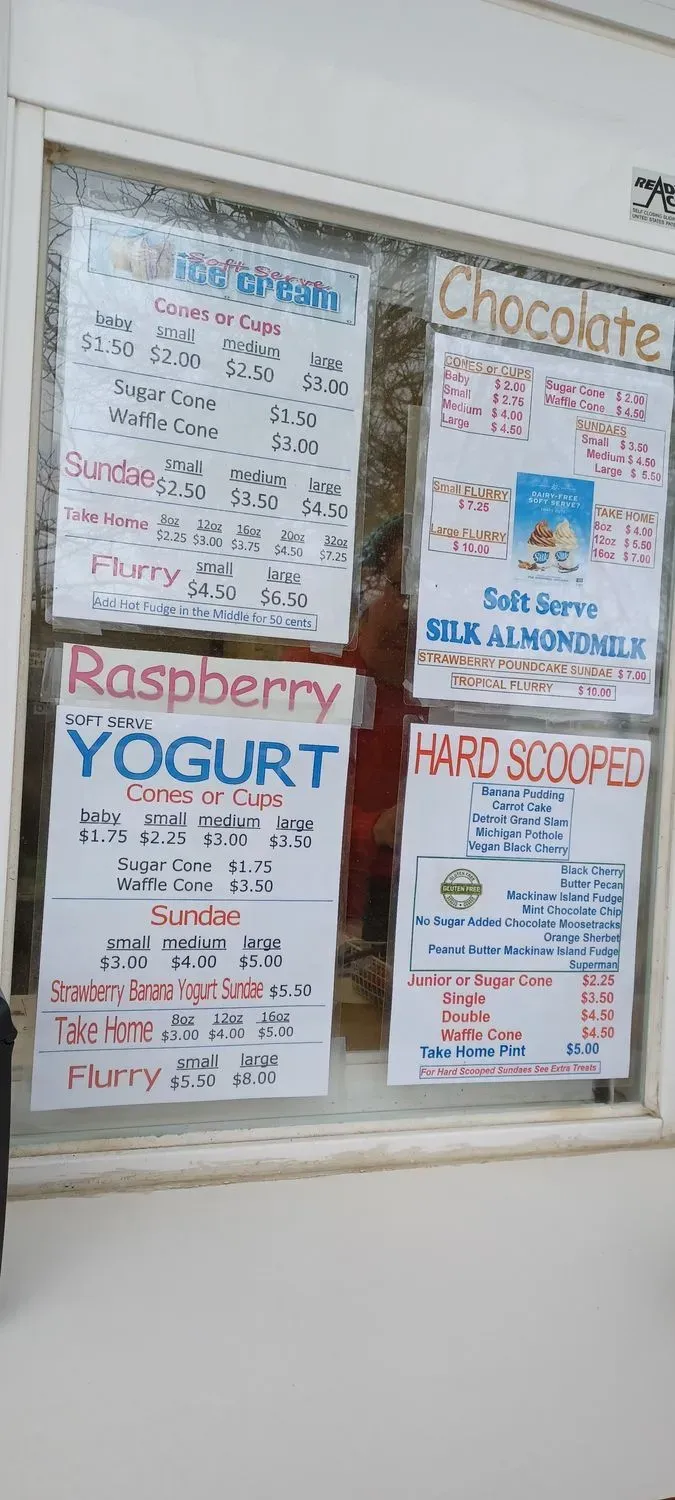 Soft Serve
ice cream
Cones or Cups
baby small medium large
$1.50 $2.00 $2.50 $3.00
Sugar Cone $1.50
Waffle Cone $3.00
Sundae small medium large
$2.50 $3.50 $4.50
Take Home 8oz 12oz 16oz 20oz 32oz
$2.25 $3.00 $3.75 $4.50 $7.25
Flurry small large
$4.50 $6.50
Add Hot Fudge in the Middle for 50 cents
Raspberry
SOFT SERVE
YOGURT
Cones or Cups
baby small medium large
$1.75 $2.25 $3.00 $3.50
Sugar Cone $1.75
Waffle Cone $3.50
Sundae
small medium large
$3.00 $4.00 $5.00
Strawberry Banana Yogurt Sundae $5.50
Take Home 8oz 12oz 16oz
$3.00 $4.00 $5.00
Flurry small large
$5.50 $8.00
Chocolate
CONES or CUPS
Baby $ 2.00
Small $ 2.75
Medium $ 4.00
Large $ 4.50
Sugar Cone $ 2.00
Waffle Cone $ 4.50
SUNDAES
Small $ 3.50
Medium $ 4.50
Large $ 5.50
Small FLURRY
$ 7.25
Large FLURRY
$ 10.00
DAIRY-FREE
SOFT SERVE?
TAKE HOME
8oz $ 4.00
12oz $ 5.50
16oz $ 7.00
Soft Serve
SILK ALMONDMILK
STRAWBERRY POUNDCAKE SUNDAE $ 7.00
TROPICAL FLURRY $ 10.00
HARD SCOOPED
Banana Pudding
Carrot Cake
Detroit Grand Slam
Michigan Pothole
Vegan Black Cherry
GLUTEN FREE
Black Cherry
Butter Pecan
Mackinaw Island Fudge
Mint Chocolate Chip
No Sugar Added Chocolate Moosetracks
Orange Sherbet
Peanut Butter Mackinaw Island Fudge
Superman
Junior or Sugar Cone $2.25
Single $3.50
Double $4.50
Waffle Cone $4.50
Take Home Pint $5.00
For Hard Scooped Sundaes See Extra Treats